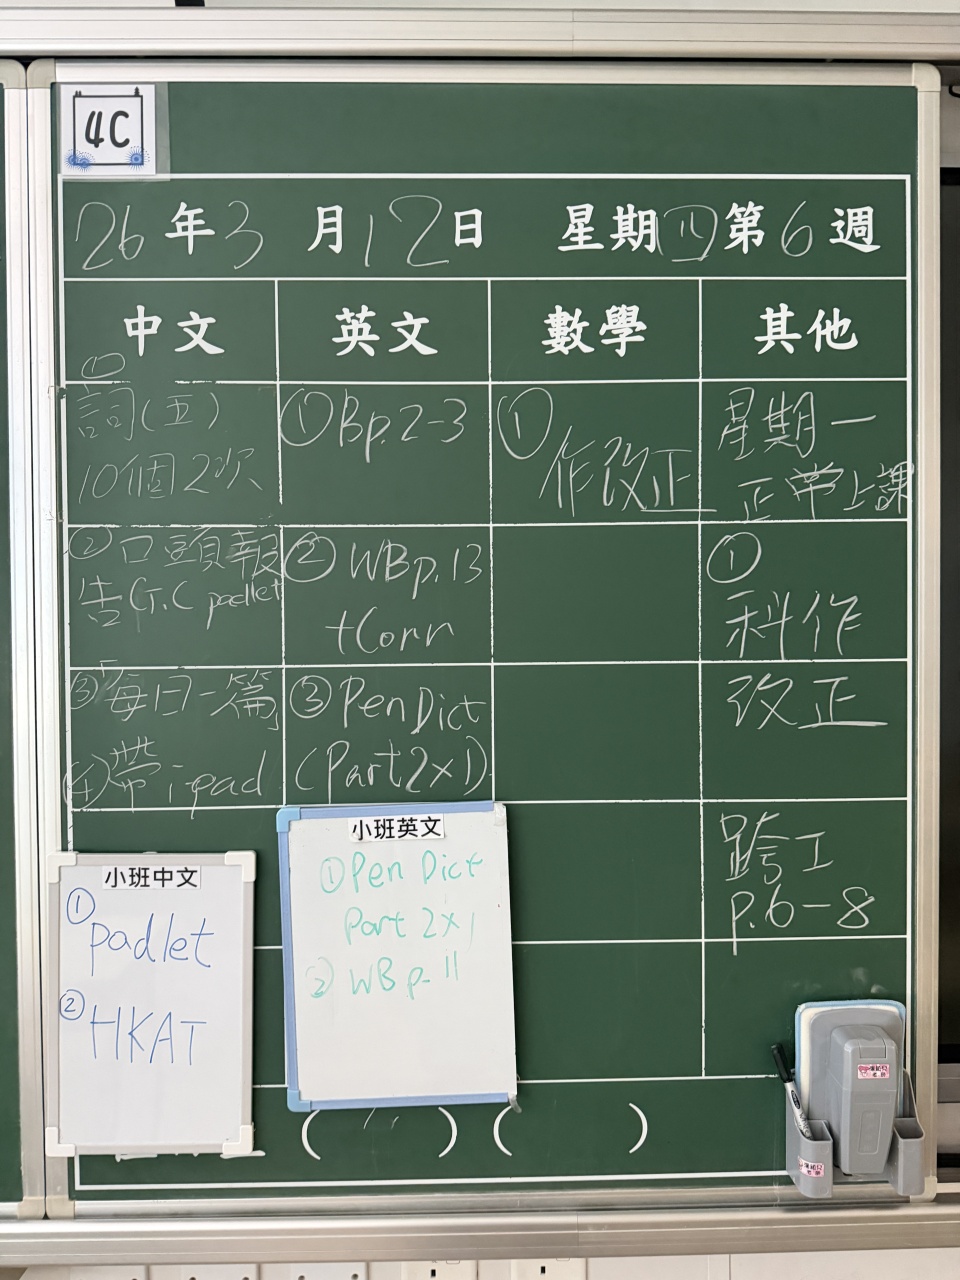 4C
26年3月12日 星期四第6週
中文 英文 數學 其他
①
詞(五)
10個2次
②口頭報
告G.C padlet
③每日一篇
④帶ipad
①Bp.2-3
②WBp.13
+Corr
③PenDict
(Part2×1)
①
作改正
星期一
正常上課
①
科作
改正
跨工
p.6-8
小班中文
①
padlet
②
HKAT
小班英文
①Pen Dict
Part 2×1
②WB p.11
( ) ( )